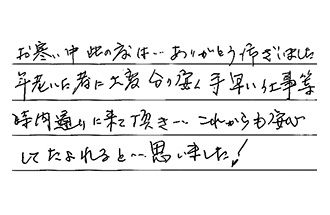 お寒い中此の度は…ありがとう御ざいました
年老いた者に大変分り安く手早い仕事等
時内通りに来て頂き…これからも安心
してたよれると…思いました!